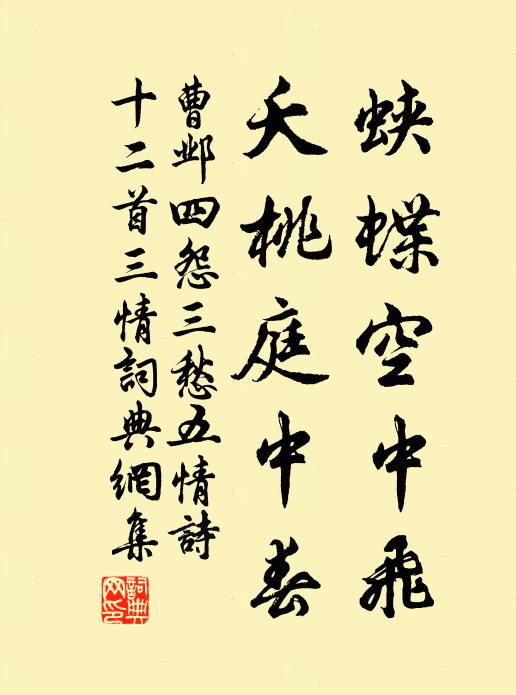 蛺蝶空中飛
夭桃庭中春
曹邺四怨三愁五情詩
十二首三情詞典網集
詞典
网印